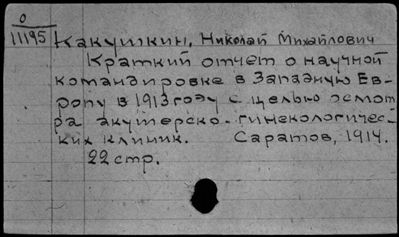 0
11195
Какушкин, Николай Михайлович
Краткий отчет о научной
командировке в Западную Ев-
ропу в 1913 году с целью осмот
ра акушерско-гинекологичес-
ких клиник. Саратов, 1914.
22 стр.